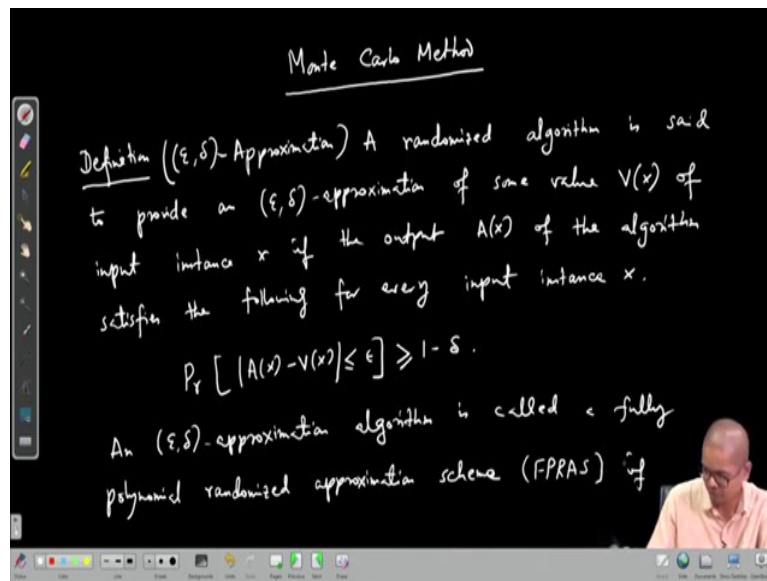 Monte Carlo Method
Definition ((ε, δ)-Approximation) A randomized algorithm is said
to provide an (ε, δ)-approximation of some value V(x) of
input instance x if the output A(x) of the algorithm
satisfies the following for every input instance x.
Pr [ |A(x) - V(x)| ≤ ϵ ] ≥ 1 - δ.
An (ε, δ)-approximation algorithm is called a fully
polynomial randomized approximation scheme (FPRAS) if